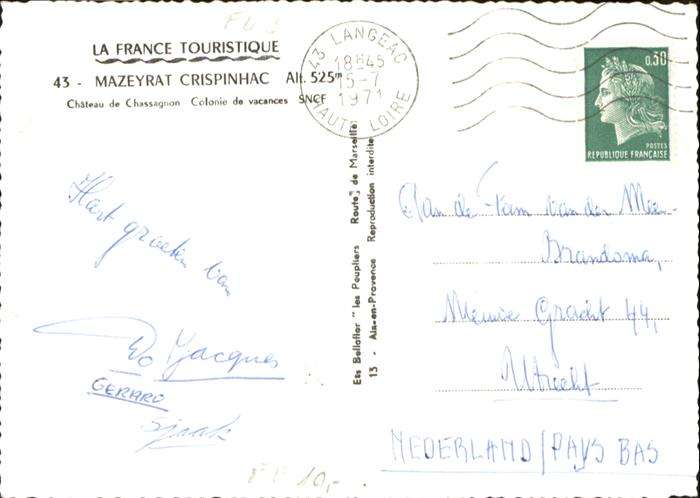 LA FRANCE TOURISTIQUE
43 - MAZEYRAT CRISPINHAC Alt. 525m
Château de Chassagnon Colonie de vacances SNCF
43 LANGEAC
18H45
15-7
1971
HAUTE LOIRE
0,30
POSTES
REPUBLIQUE FRANÇAISE
Hart. groeten van
Jacques
GERARD
Sjaak
Ets Bellaflor " les Peupliers Route de Marseille
13 - Aix-en-Provence Reproduction interdite
Aan de Fam van der Meer
Brandsma,
Nieuwe Gracht 44,
Utrecht
NEDERLAND/PAYS BAS
10,-